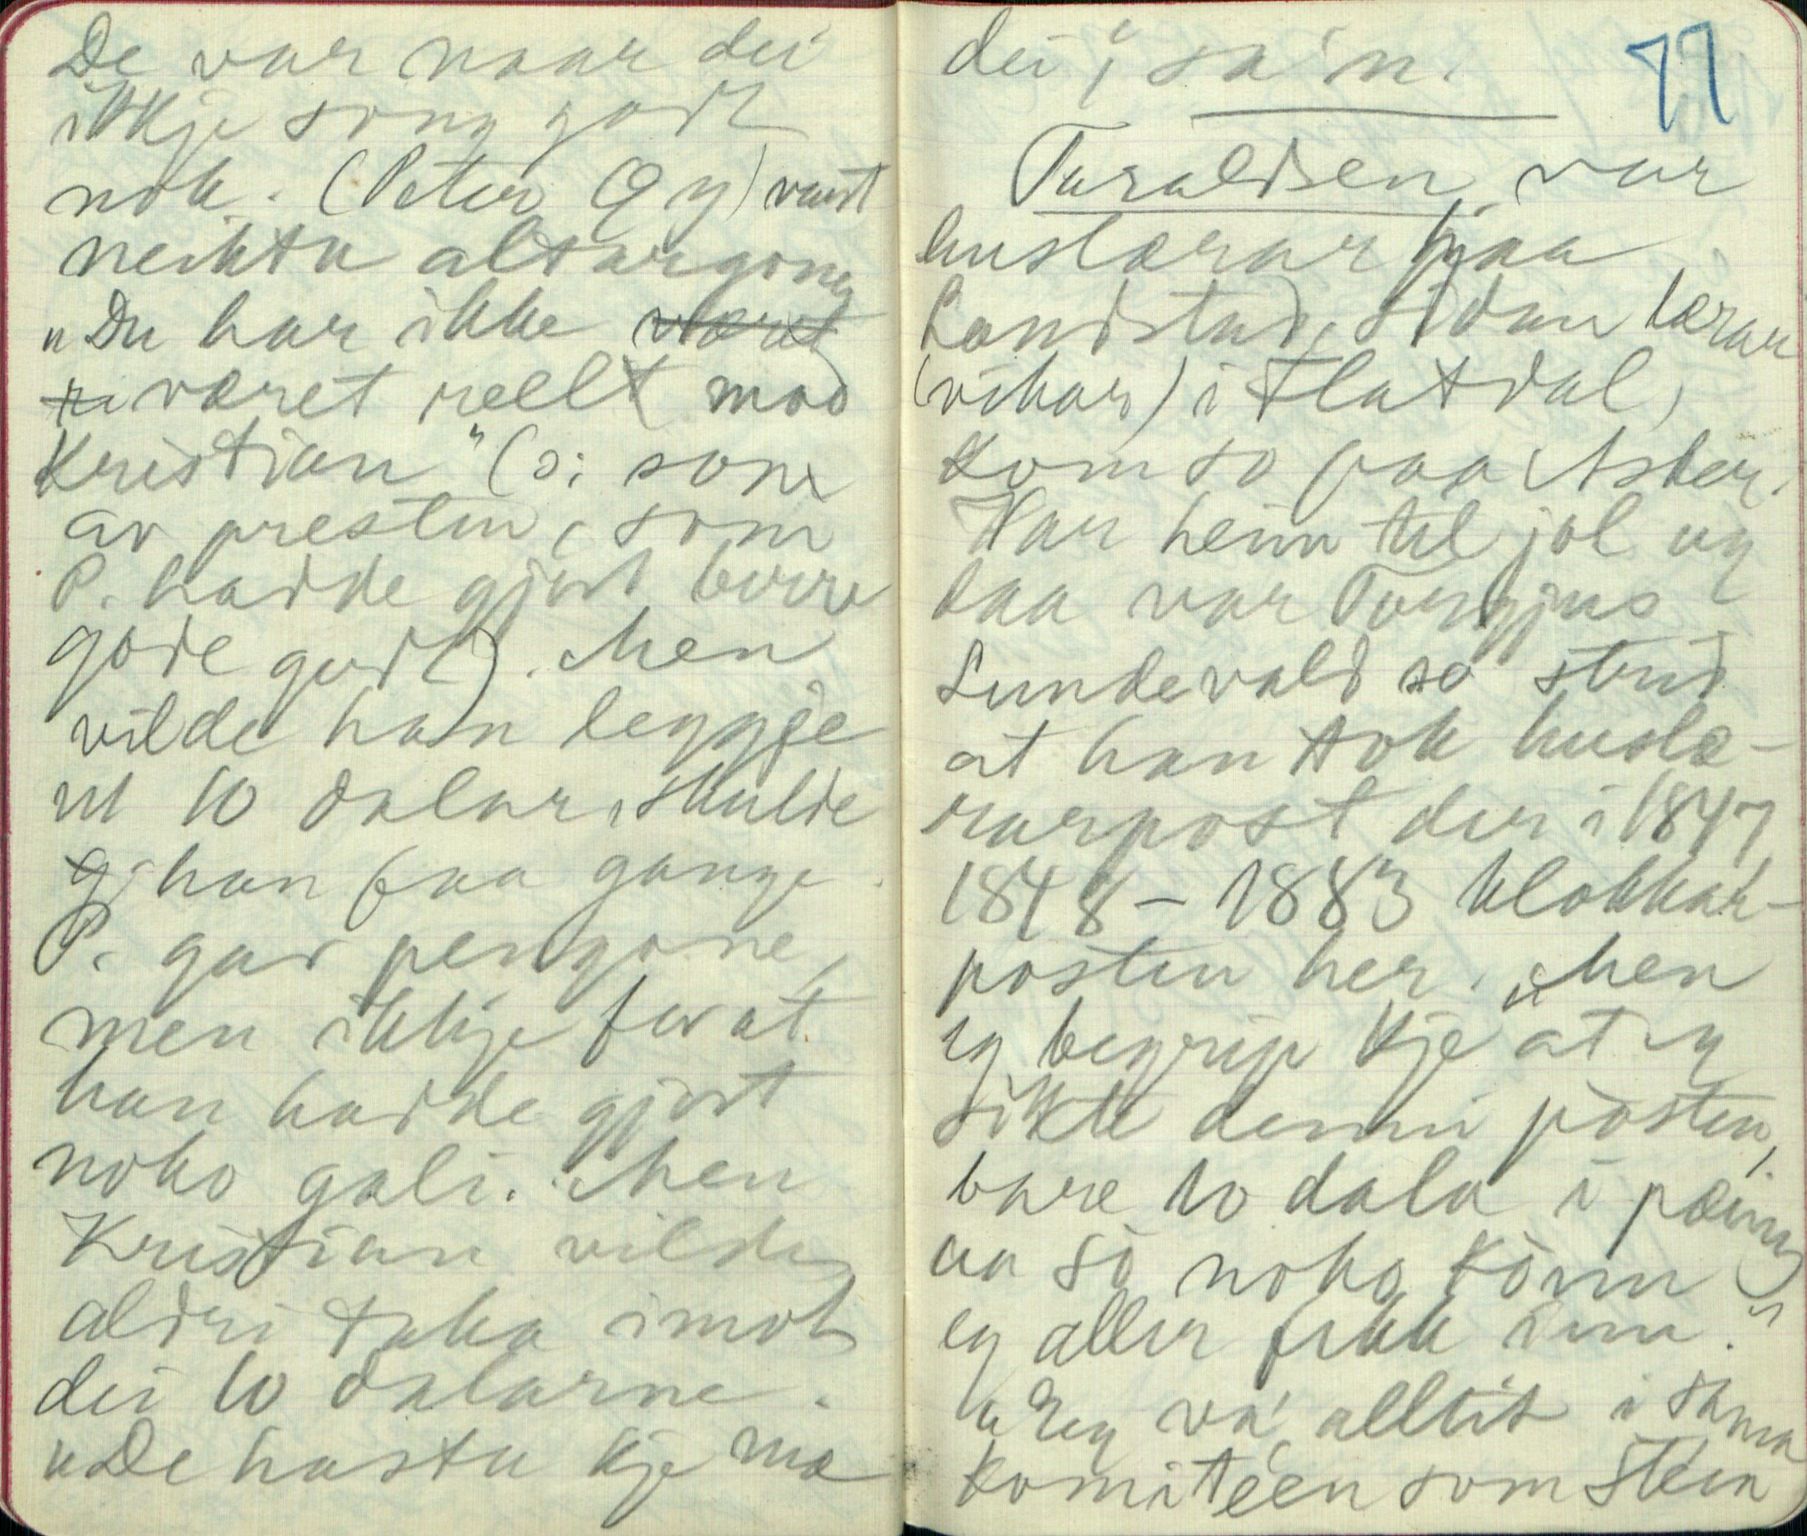 De var naar dei
ikkje song godt
nok. (Peter Øy) vart
neikta altargong
"Du har ikke været
været reelt mod
Kristian" (ɔ: son
av presten, som
P. hadde gjort berre
gode godt). Men
vilde han leggje
ut 10 dalar, skulde
han faa gange.
P. gav pengane,
men ikkje for at
han hadde gjort
noko gali. Men
Kristian vilde
aldri taka imot
dei 10 dalarne.
"De hasta kje mæ
dei", sa'n.
77
Taraldsen var
huslærar paa
Landstad, sidan lærar
(vikar) i Flatdal,
kom so paa Asker.
Var heim til jol og
daa var Torgjus
Sundevald so strid
at han tok huslæ-
rarpost der i 1847
1848 - 1883 klokkar-
posten her. "Men
eg begrip kje at eg
sikte denni posten,
bare 10 dala i pæing
aa so noko könn
eg aller fekk inn."
"Eg va' alltit i sama
komitéen som Stein